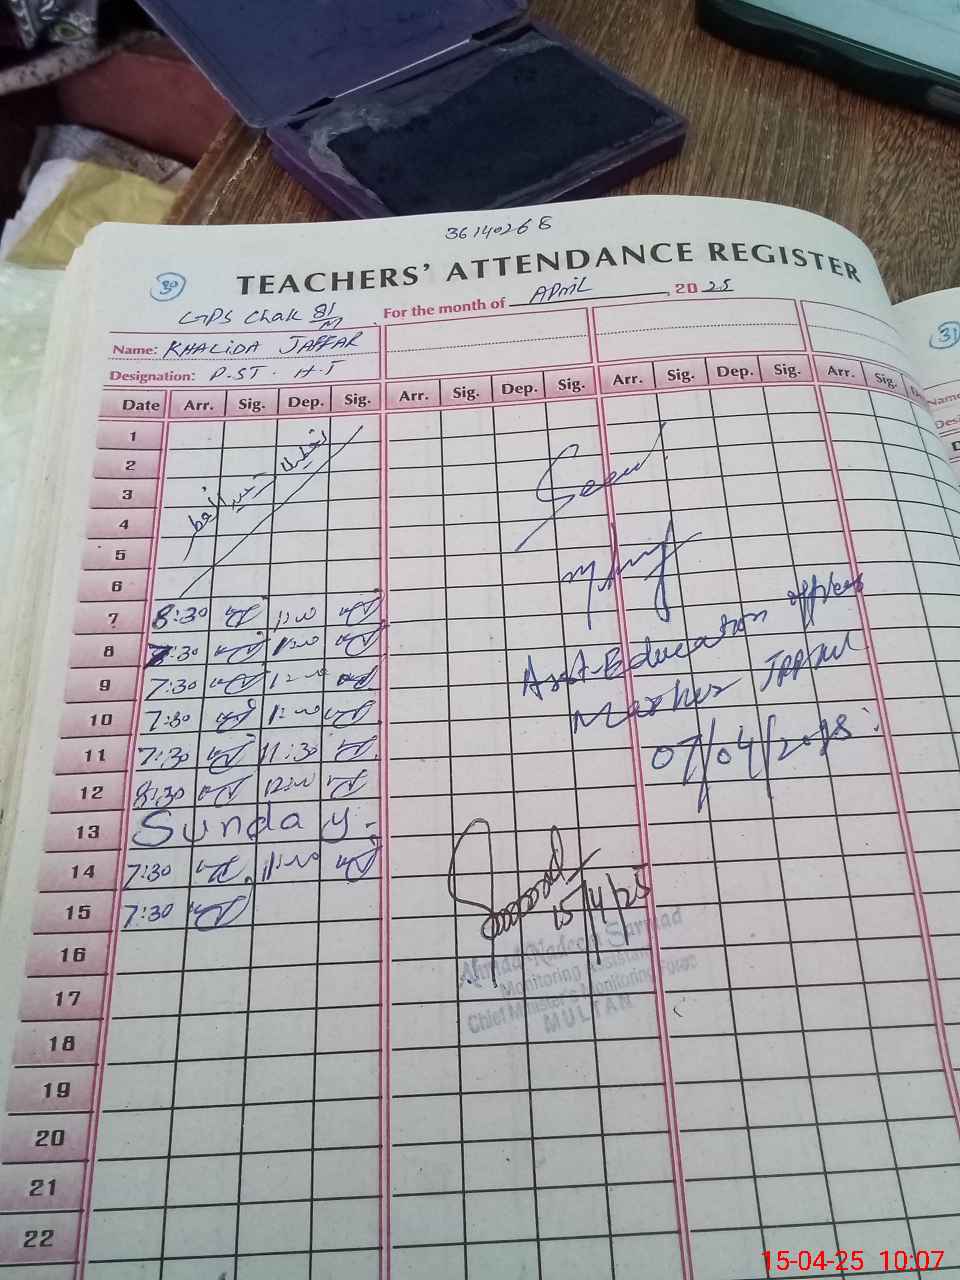 36140268
30
TEACHERS' ATTENDANCE REGISTER
GPS Chak 81/M
For the month of APRIL, 2025
Name: KHALIDA JAFFAR
Designation: P.ST. H.T
Date Arr. Sig. Dep. Sig. Arr. Sig. Dep. Sig. Arr. Sig. Dep. Sig. Arr. Sig.
1
2
3
4
5
6
7 8:30
8 7:30
9 7:30
10 7:30
11 7:30 11:30
12 8:30
13 Sunday.
14 7:30
15 7:30
16
17
18
19
20
21
22
Seen
Asst-Education officer
Markaz
07/04/2025
15/4/25
Ahmad Nadeem Sarmad
Monitoring Assistant
Chief Minister's Monitoring Force
MULTAN
31
Name
15-04-25 10:07